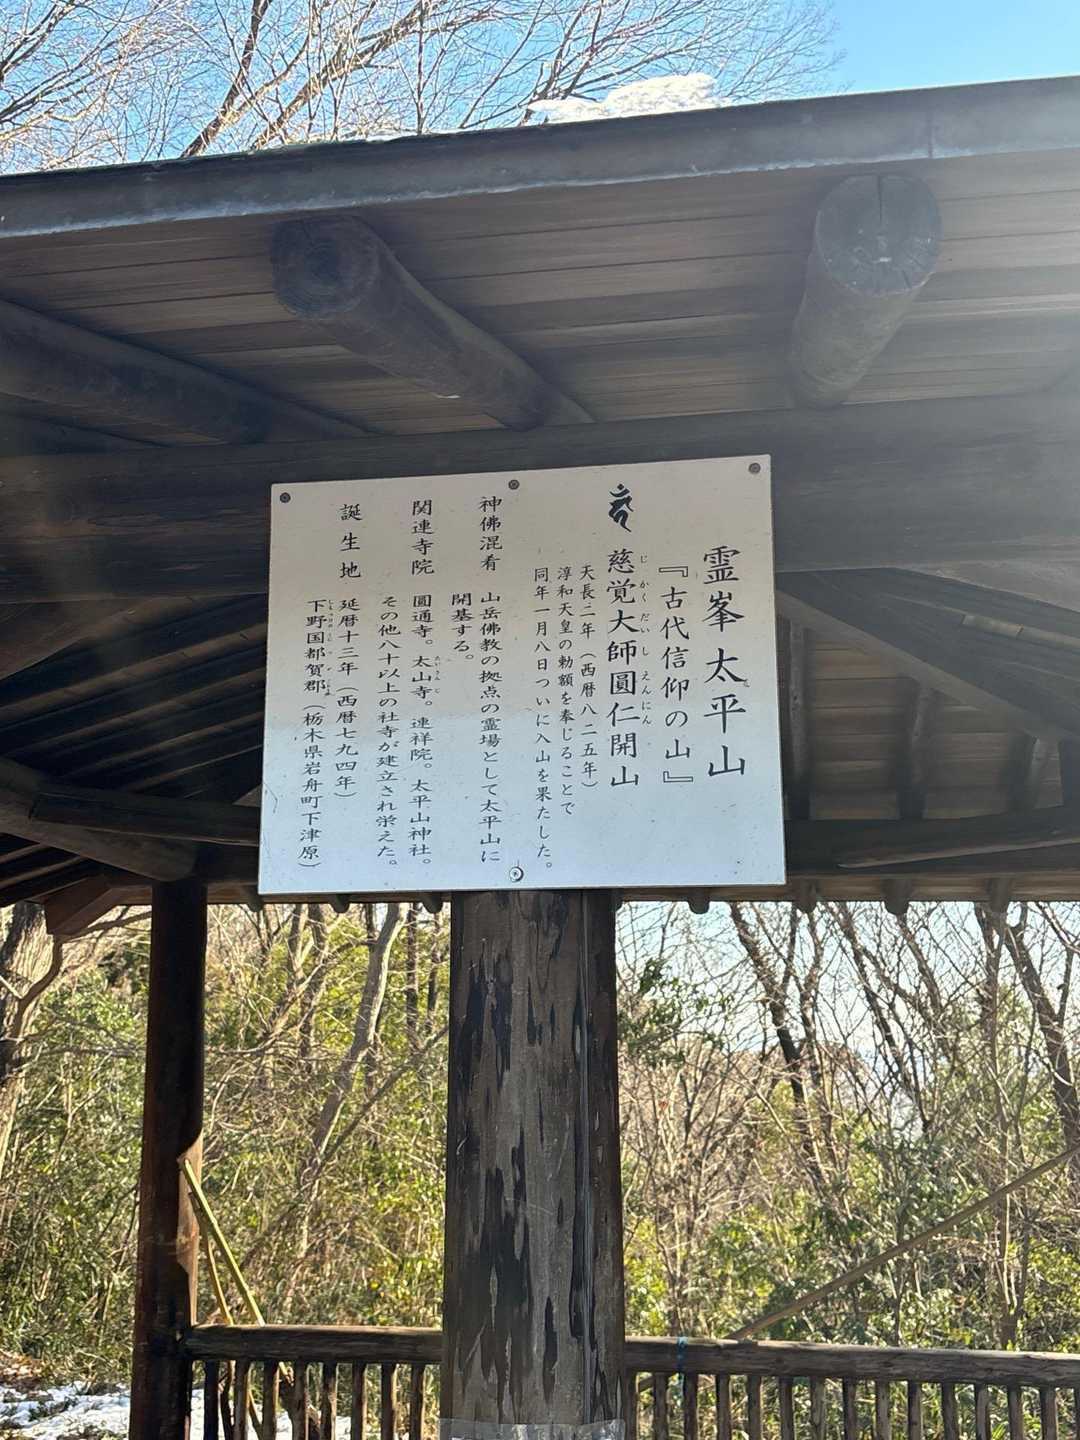 霊峯 太平山
『古代信仰の山』
慈覚大師圓仁開山
じかくだいしえんにん
天長二年（西暦八二五年）
淳和天皇の勅額を奉じることで
同年一月八日ついに入山を果たした。
神佛混肴 山岳佛教の拠点の霊場として太平山に
開基する。
関連寺院 圓通寺。太山寺。連祥院。太平山神社。
たいさんじ
その他八十以上の社寺が建立され栄えた。
誕生地 延暦十三年（西暦七九四年）
下野国都賀郡（栃木県岩舟町下津原）